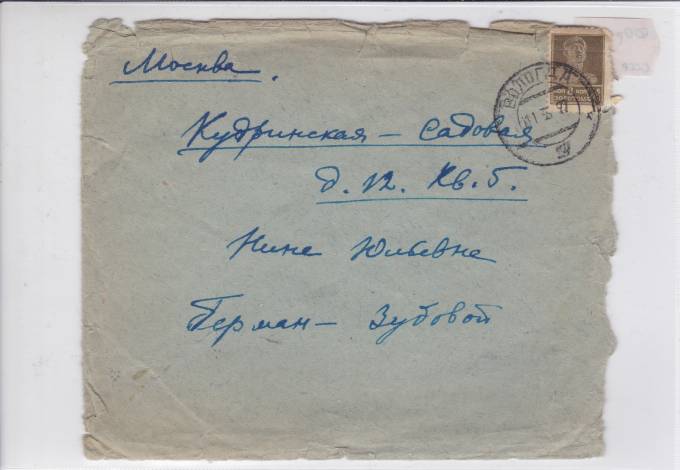 Москва.
Кудринская – Садовая
д. 12. кв. 6.
Нине Юльевне
Герман – Зубовой
ВОЛОГДА